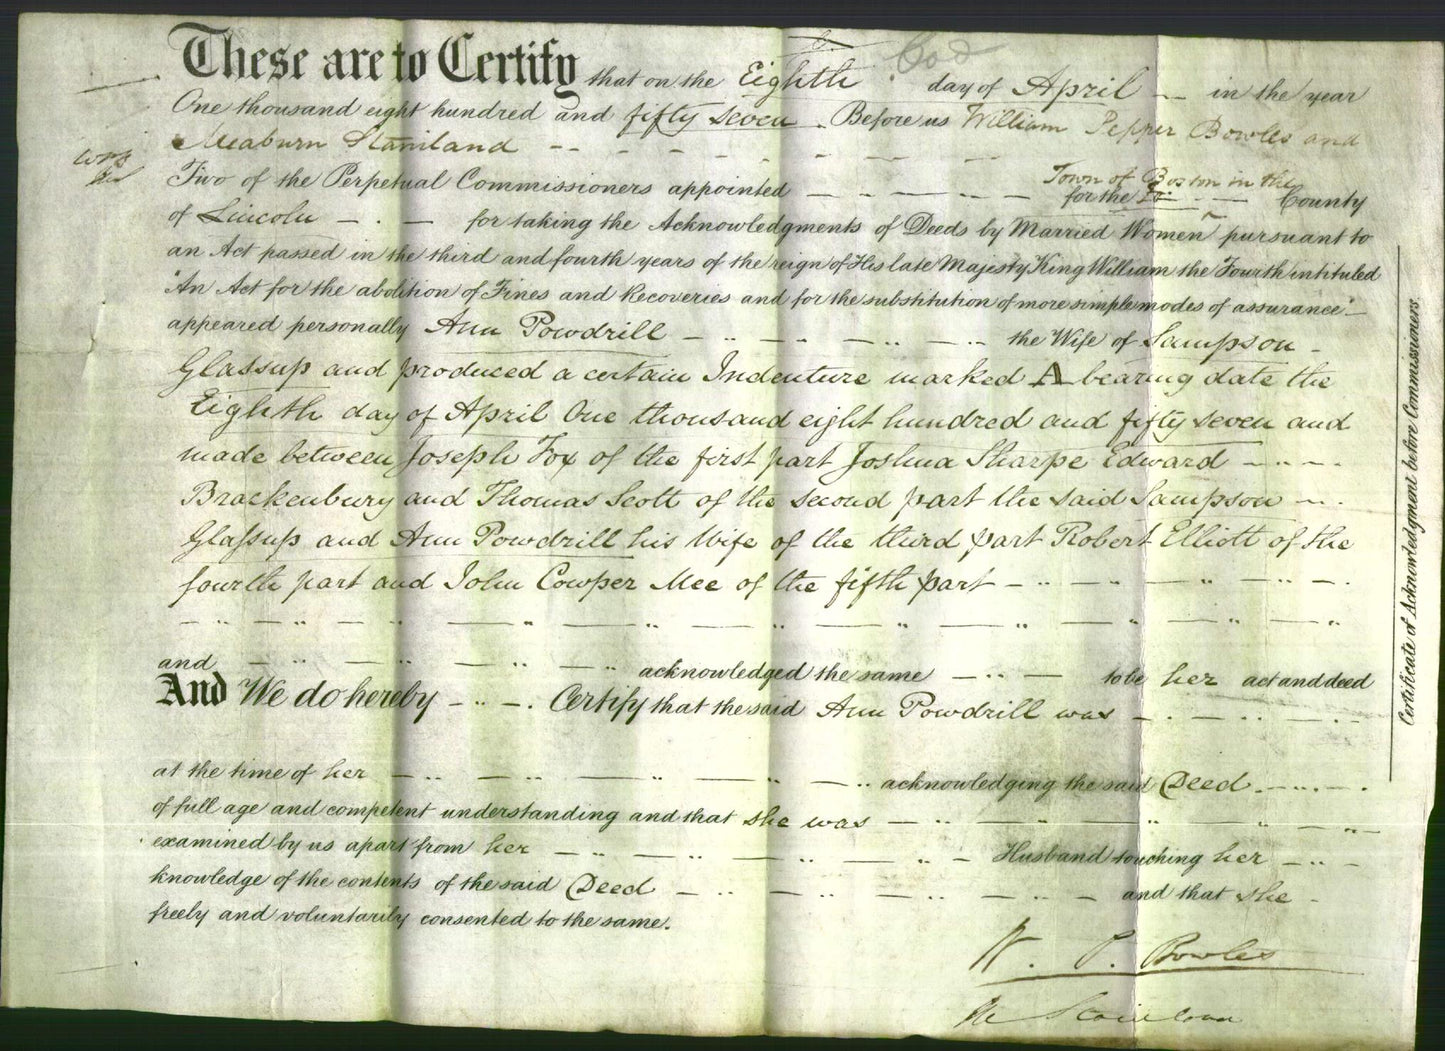 These are to Certify that on the Eighth day of April in the year
One thousand eight hundred and fifty seven Before us William Pepper Bowles and
Meaburn Staniland
Town of Boston in the
Two of the Perpetual Commissioners appointed for the County
of Lincoln for taking the Acknowledgments of Deeds by Married Women pursuant to
an Act passed in the third and fourth years of the reign of His late Majesty King William the Fourth intituled
"An Act for the abolition of Fines and Recoveries and for the substitution of more simple modes of assurance"
appeared personally Ann Powdrill the Wife of Sampson
Glassup and produced a certain Indenture marked A bearing date the
Eighth day of April One thousand eight hundred and fifty seven and
made between Joseph Fox of the first part Joshua Sharpe Edward
Brackenbury and Thomas Scott of the second part the said Sampson
Glassup and Ann Powdrill his Wife of the third part Robert Elliott of the
fourth part and John Cowper Mee of the fifth part
and acknowledged the same to be her act and deed
And We do hereby Certify that the said Ann Powdrill was
at the time of her acknowledging the said Deed
of full age and competent understanding and that she was
examined by us apart from her Husband touching her
knowledge of the contents of the said Deed and that she
freely and voluntarily consented to the same.
W. P. Bowles
M Staniland
Certificate of Acknowledgment before Commissioners.